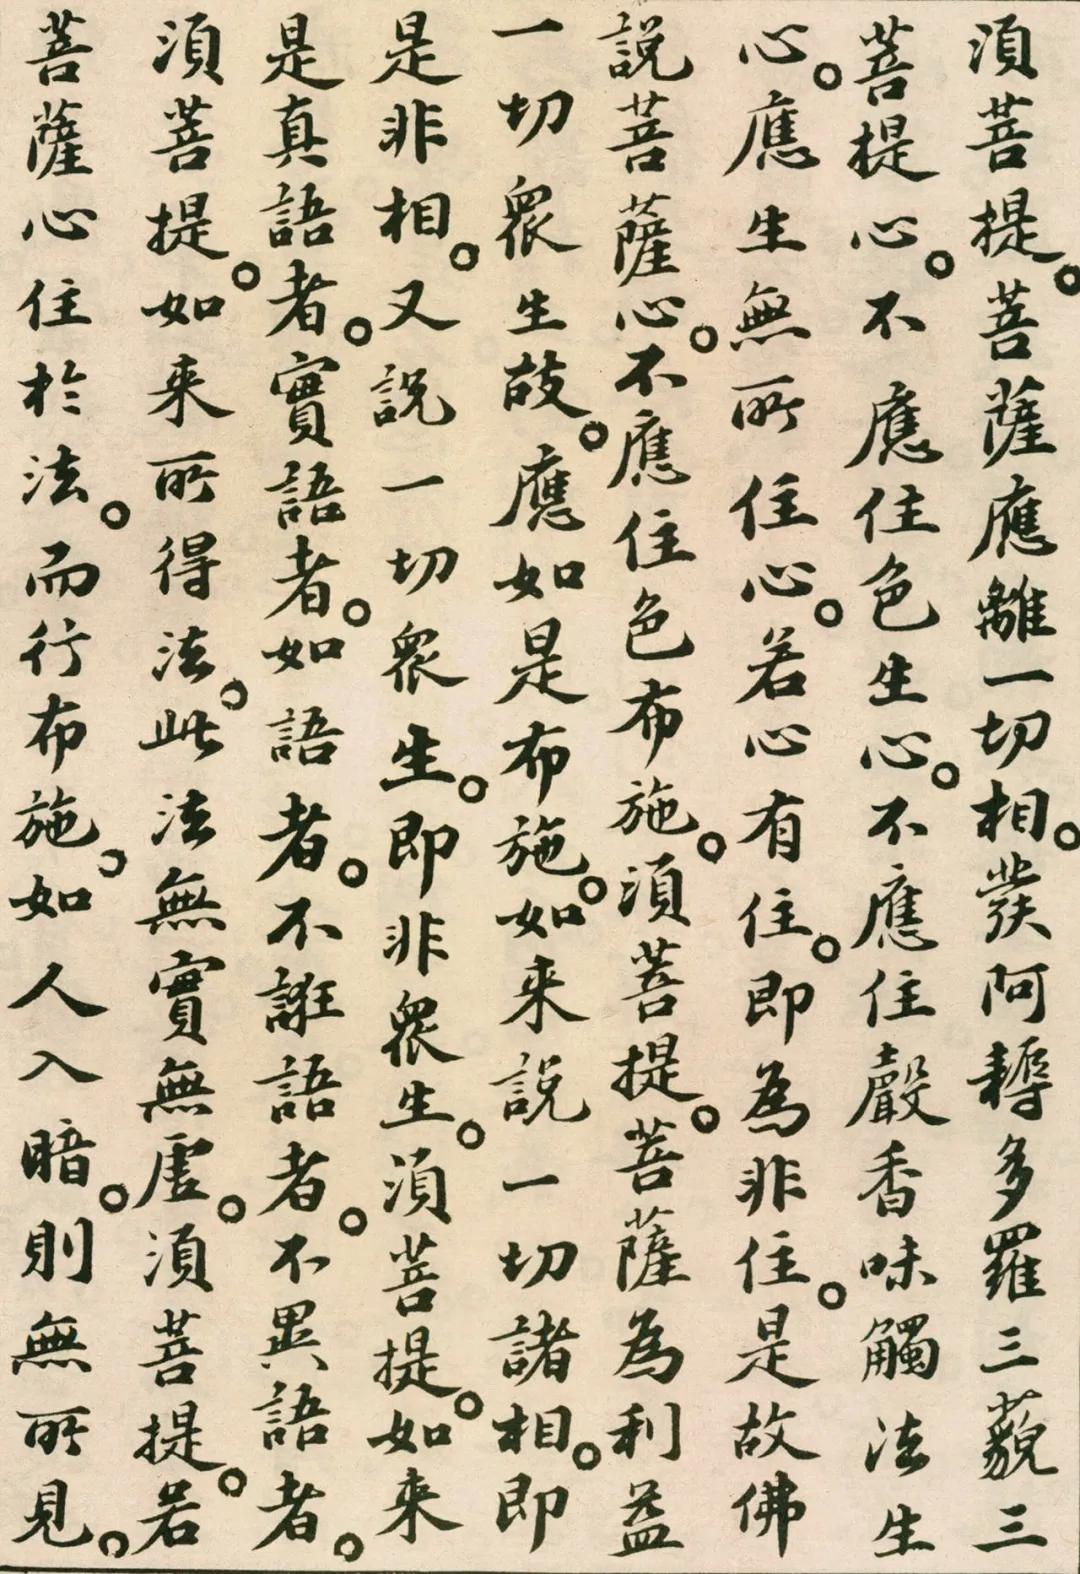 須菩提。菩薩應離一切相。發阿耨多羅三藐三
菩提心。不應住色生心。不應住聲香味觸法生
心。應生無所住心。若心有住。即為非住。是故佛
說菩薩心。不應住色布施。須菩提。菩薩為利益
一切眾生故。應如是布施。如来說一切諸相。即
是非相。又說一切眾生。即非眾生。須菩提。如来
是真語者。實語者。如語者。不誑語者。不異語者。
須菩提。如来所得法。此法無實無虛。須菩提。若
菩薩心住於法。而行布施。如人入暗。則無所見。